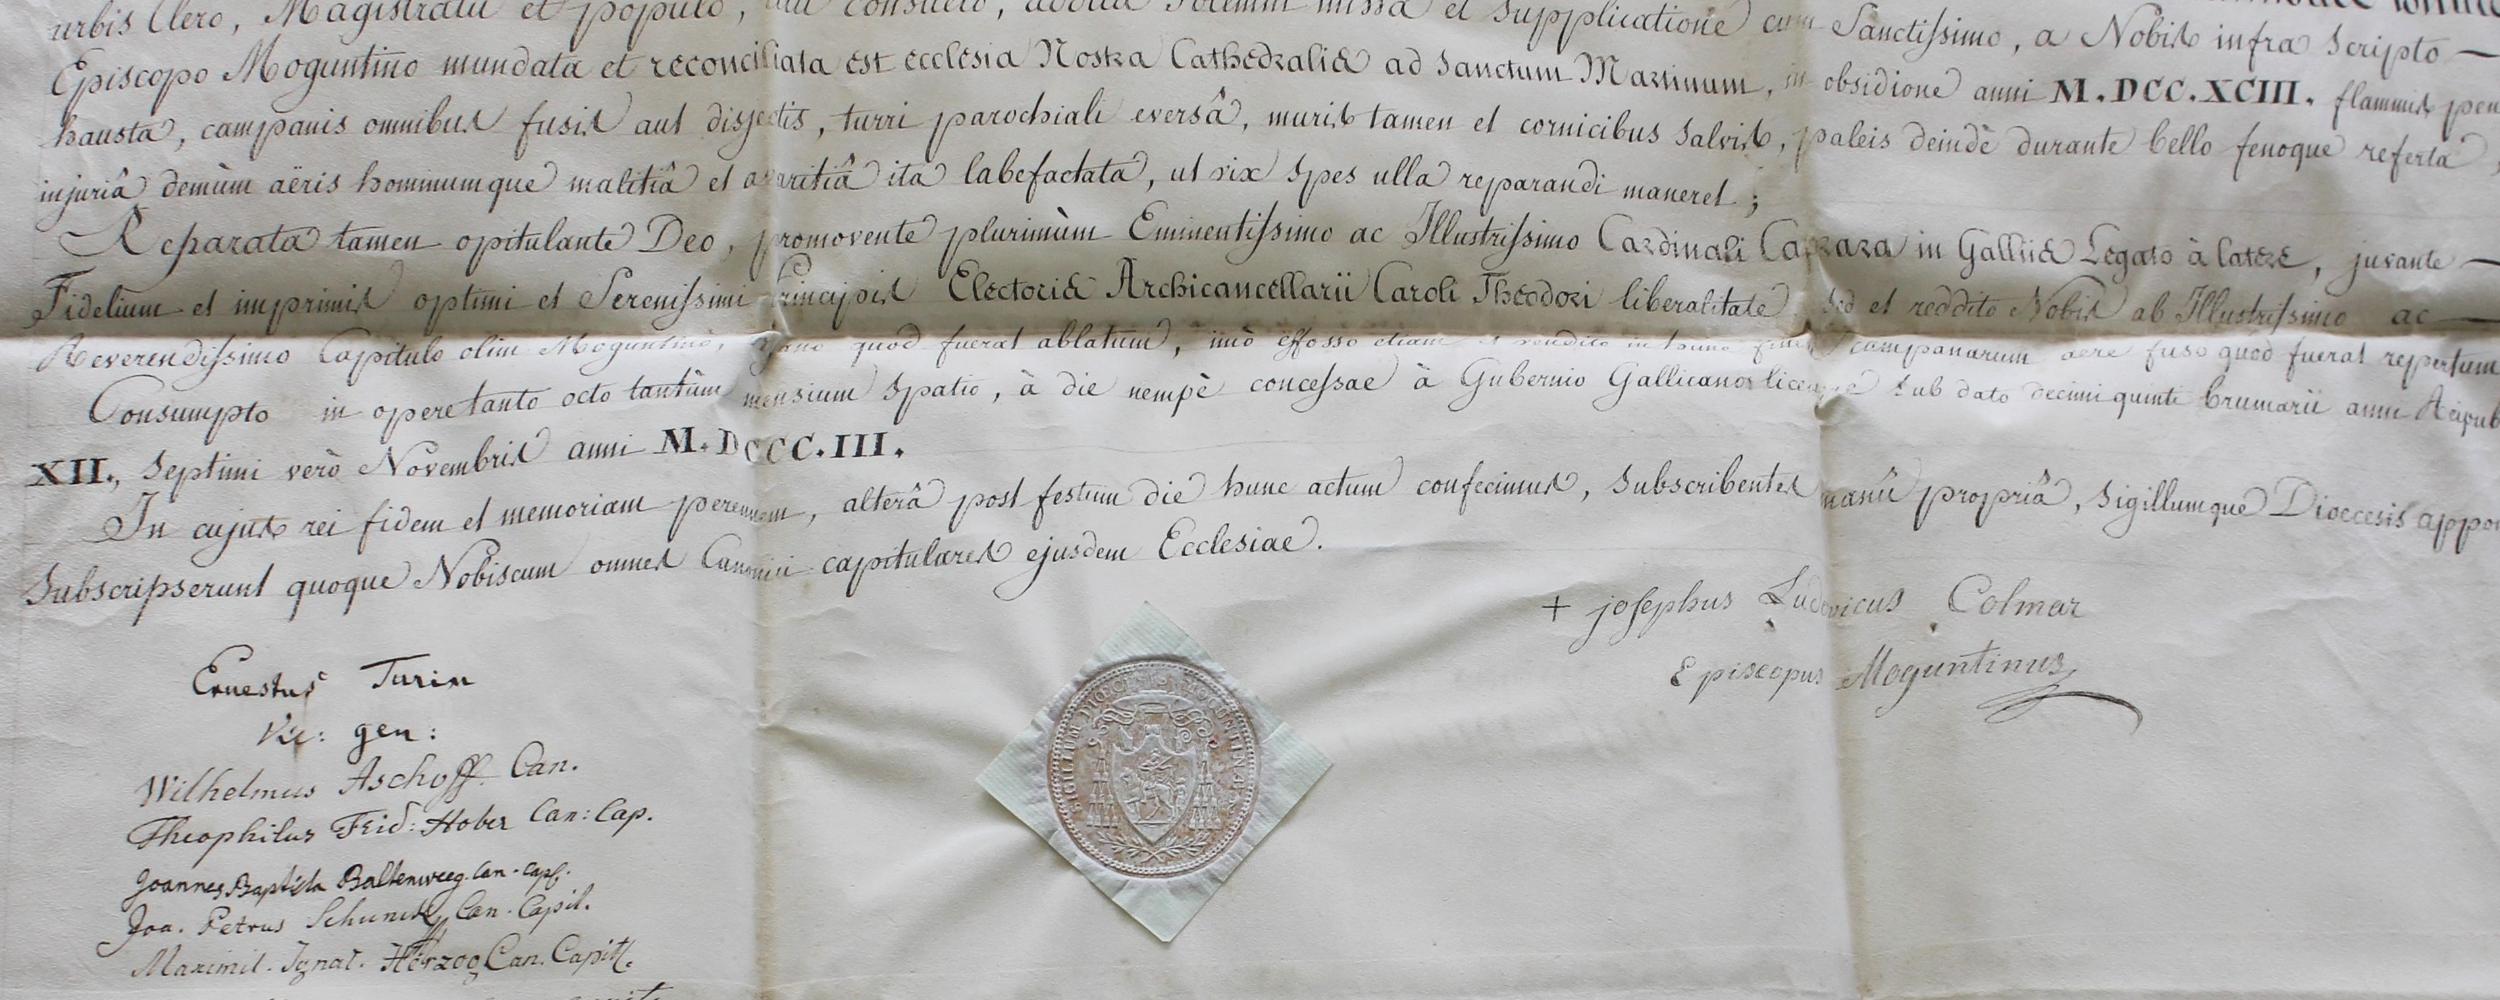 urbis Clero, Magistratu et populo, uti consueto, addita solemni missa et supplicatione cum Sanctissimo, a Nobis infra scripto —
Episcopo Moguntino mundata et reconciliata est ecclesia Nostra Cathedralis ad Sanctum Martinum, in obsidione anni M.DCC.XCIII. flammis
hausta, campanis omnibus fusis aut disjectis, turri parochiali eversâ, muris tamen et cornicibus salvis, paleis deindè durante bello fenoque referta,
injuriâ demùm aëris hominumque malitiâ et avaritiâ ita labefactata, ut vix spes ulla reparandi maneret;
Reparata tamen opitulante Deo, promovente plurimùm Eminentissimo ac Illustrissimo Cardinali Caprara in Galliis Legato à latere, juvante —
Fidelium et imprimis optimi et Serenissimi Principis Electoris Archicancellarii Caroli Theodori liberalitate, sed et reddito Nobis ab Illustrissimo ac —
Reverendissimo Capitulo olim Moguntino, quod fuerat ablatum, imò effosso etiam et vendito in hunc finem campanarum aere fuso quod fuerat repertum
Consumpto in opere tanto octo tantùm mensium spatio, à die nempè concessae à Gubernio Gallicano licentiae sub dato decimi quinti brumarii anni Reipub
XII., Septimi verò Novembris anni M.DCCC.III.
In cujus rei fidem et memoriam perennem, alterâ post festum die hunc actum confecimus, subscribentes manû propriâ, sigillumque Dioecesis
Subscripserunt quoque Nobiscum omnes Canonici capitulares ejusdem Ecclesiae.
+ josephus Ludovicus Colmar
Episcopus Moguntinus
SIGILLUM DIOECESIS MOGUNTINAE
Ernestus Turin
Vic: gen:
Wilhelmus Aschoff Can.
Theophilus Frid: Hober Can: Cap.
Joannes Baptista Baltenweeg. Can. cap.
Joa. Petrus Schunck Can. Capit.
Maximil. Ignat. Herzog Can. Capit.